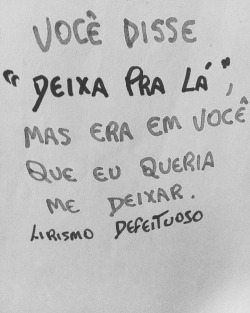 VOCÊ DISSE
"DEIXA PRA LÁ",
MAS ERA EM VOCÊ
QUE EU QUERIA
ME DEIXAR.
LIRISMO DEFEITUOSO